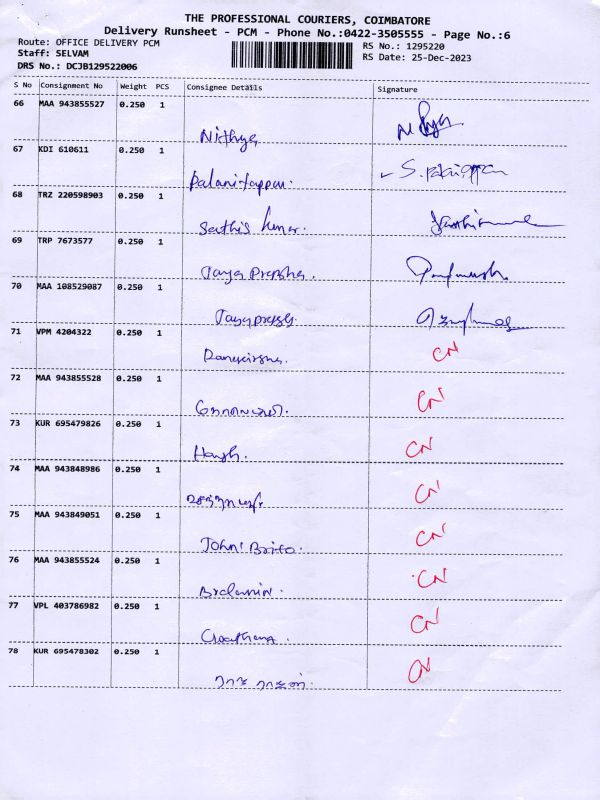 THE PROFESSIONAL COURIERS, COIMBATORE
Delivery Runsheet - PCM - Phone No.:0422-3505555 - Page No.:6
Route: OFFICE DELIVERY PCM
Staff: SELVAM
DRS No.: DCJB129522006
RS No.: 1295220
RS Date: 25-Dec-2023
S No Consignment No Weight PCS Consignee Details Signature
66 MAA 943855527 0.250 1
Nithya
67 KDI 610611 0.250 1
Palaniappan.
68 TRZ 220598903 0.250 1
Sathis kumar.
69 TRP 7673577 0.250 1
70 MAA 108529087 0.250 1
71 VPM 4204322 0.250 1
CN
72 MAA 943855528 0.250 1
CN
73 KUR 695479826 0.250 1
CN
74 MAA 943848986 0.250 1
CN
75 MAA 943849051 0.250 1
John Brito. CN
76 MAA 943855524 0.250 1
CN
77 VPL 403786982 0.250 1
CN
78 KUR 695478302 0.250 1
CN